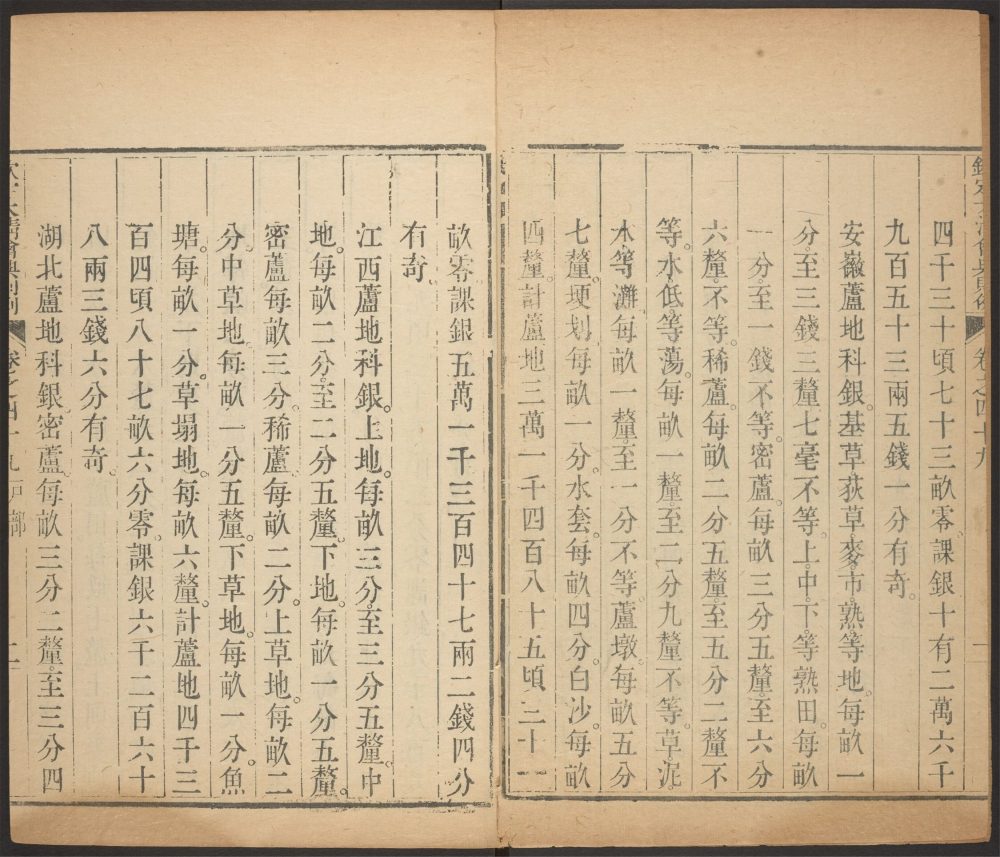 四千三十頃七十三畝零課銀十有二萬六千
九百五十三兩五錢一分有奇。
安徽蘆地科銀。基草荻草麥市熟等地。每畝一
分至三錢三釐七毫不等。上中下等熟田。每畝
一分至一錢不等。密蘆。每畝三分五釐至六分
六釐不等。稀蘆。每畝二分五釐至五分二釐不
等。水低等蕩。每畝一釐至二分九釐不等。草泥
水等灘。每畝一釐至一分不等。蘆墩。每畝五分
七釐。埂划每畝一分。水套。每畝四分。白沙。每畝
四釐。計蘆地三萬一千四百八十五頃二十一
畝零課銀五萬一千三百四十七兩二錢四分
有奇。
江西蘆地科銀。上地。每畝三分至三分五釐。中
地。每畝二分至二分五釐。下地。每畝一分五釐。
密蘆每畝三分。稀蘆。每畝二分。上草地。每畝二
分。中草地。每畝一分五釐。下草地。每畝一分。魚
塘。每畝一分。草塌地。每畝六釐。計蘆地四千三
百四頃八十七畝六分零。課銀六千二百六十
八兩三錢六分有奇。
湖北蘆地科銀。密蘆每畝三分二釐至三分四
大清會典則例 卷之四十九戶部 二